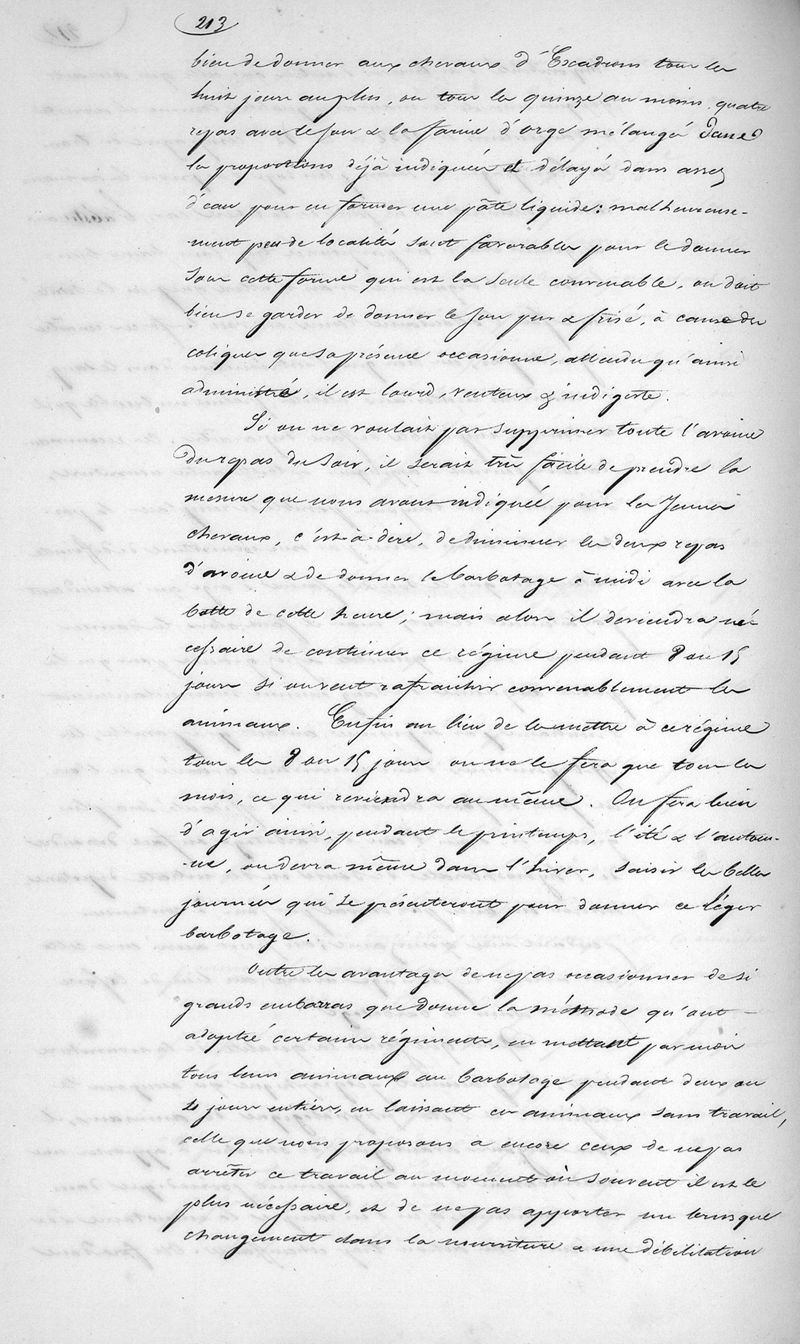 213
bien de donner aux chevaux d'Escadrons tous les
huit jours au plus, ou tous les quinze au moins, quatre
repas avec le son & la farine d'orge mélangés dans
les proportions déjà indiquées et délayés dans assez
d'eau pour en former une pâte liquide: malheureuse-
-ment peu de localités sont favorables pour le donner
sous cette forme qui est la seule convenable, on doit
bien se garder de donner le son pur & frisé, à cause des
coliques que sa présence occasionne, attendu qu'ainsi
administré, il est lourd, venteux & indigeste.
Si on ne voulait pas supprimer toute l'avoine
du repas du soir, il serait très facile de prendre la
mesure que nous avons indiquée pour les Jeunes
chevaux, c'est-à-dire, de diminuer les deux repas
d'avoine & de donner le barbotage à midi avec la
botte de cette heure; mais alors il deviendra né-
cessaire de continuer ce régime pendant 8 ou 15
jours si on veut rafraichir convenablement les
animaux. Enfin au lieu de les mettre à ce régime
tous les 8 ou 15 jours on ne le fera que tous les
mois, ce qui reviendra au même. On fera bien
d'agir ainsi, pendant le printemps, l'été & l'autom-
-ne, on devra même dans l'hiver, saisir les belles
journées qui se présenteront pour donner ce léger
barbotage.
Outre les avantages de ne pas occasionner de si
grands embarras que donne la méthode qu'ont
adoptée certains régiments, en mettant par mois
tous leurs animaux au barbotage pendant deux ou
jours entiers, en laissant ces animaux sans travail,
celle que nous proposons a encore ceux de ne pas
arrêter ce travail au moment où souvent il est le
plus nécessaire, et de ne pas apporter un brusque
changement dans la nourriture & une débilitation